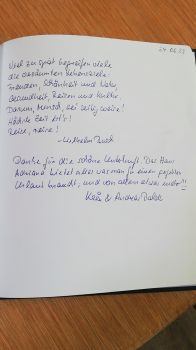 24.06.23
Viel zu spät begreifen viele
die versäumten Lebensziele:
Freuden, Schönheit und Natur,
Gesundheit, Reisen und Kultur.
Darum, Mensch, sei zeitig weise!
Höchste Zeit ist's!
Reise, reise!
- Wilhelm Busch
Danke für die schöne Unterkunft. Das Haus
Adriana bietet alles was man für einen perfekten
Urlaub braucht, und von allem etwas mehr!!!
& Andreas